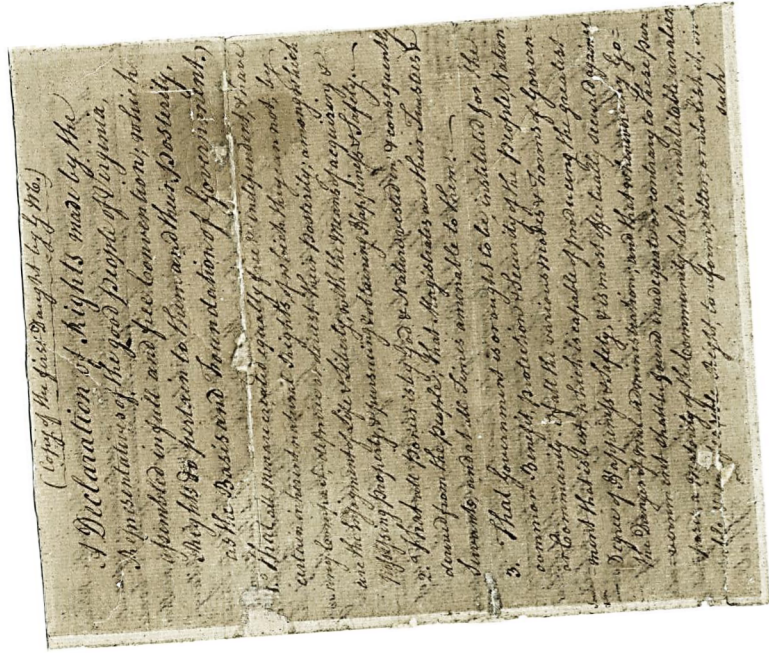 (Copy of the first Daught by G M.)
A Declaration of Rights made by the
Representatives of the good people of Virginia,
assembled in full and free Convention; which
Rights do pertain to them and their Posterity,
as the Basis and Foundation of Government.
1. That all men are equally free & independent & have
certain inherent natural Rights, of which they cannot, by
any Compact, deprive or divest their Posterity; among which
are the Enjoyment of Life & Liberty, with the Means of acquiring &
possessing Property, & pursuing & obtaining Happiness & Safety.
2. That all Power is by God & Nature vested in, & consequently
derived from the People; that Magistrates are their Trustees &
Servants, and at all Times amenable to them.
3. That Government is, or ought to be, instituted for the
common Benefit, protection & Security of the People, Nation
or Community. Of all the various modes & Forms of Govern-
ment, that is best, which is capable of producing the greatest
Degree of Happiness & Safety, & is most effectually secured against
the Danger of mal-administration; and that whenever any Go-
vernment shall be found inadequate or contrary to these pur-
poses, a Majority of the Community hath an indubitable, unalien-
able Right, to reform, alter, or abolish it, in
such